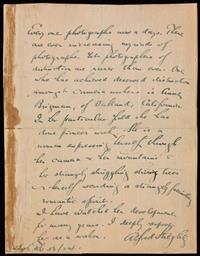 Every one photographs now a days. There
are ever increasing myriads of
photographs. Yet photographers of
distinction are rarer than ever. One
who has achieved deserved distinction
amongst camera workers is Annie
Brigman, of Oakland, California.
In her particular field she has
done pioneer work. She is a
woman expressing herself through
her camera & her mountains &
her strangely struggling trees
a herself revealing a strangely
romantic spirit.
I have watched her development
for many years. I deeply respect
her as a worker.
Alfred Stieglitz